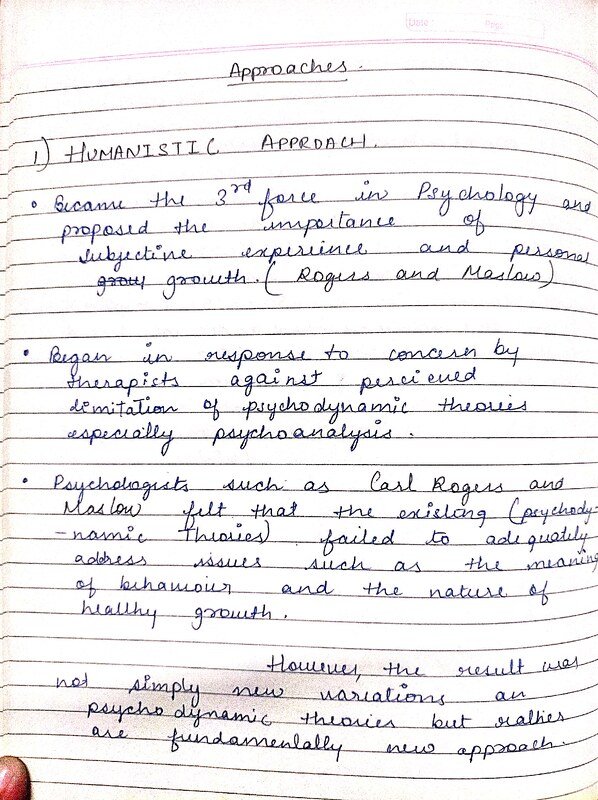 Date: Page
Approaches.
1) HUMANISTIC APPROACH.
• Became the 3rd force in Psychology and
proposed the importance of
subjective experience and personal
growth. (Rogers and Maslow)
• Began in response to concern by
therapists against percieved
limitation of psychodynamic theories
especially psychoanalysis.
• Psychologists such as Carl Rogers and
Maslow felt that the existing (psychody-
-namic theories) failed to adequately
address issues such as the meaning
of behaviour and the nature of
healthy growth.
However, the result was
not simply new variations on
psychodynamic theories but rather
are fundamentally new approach.